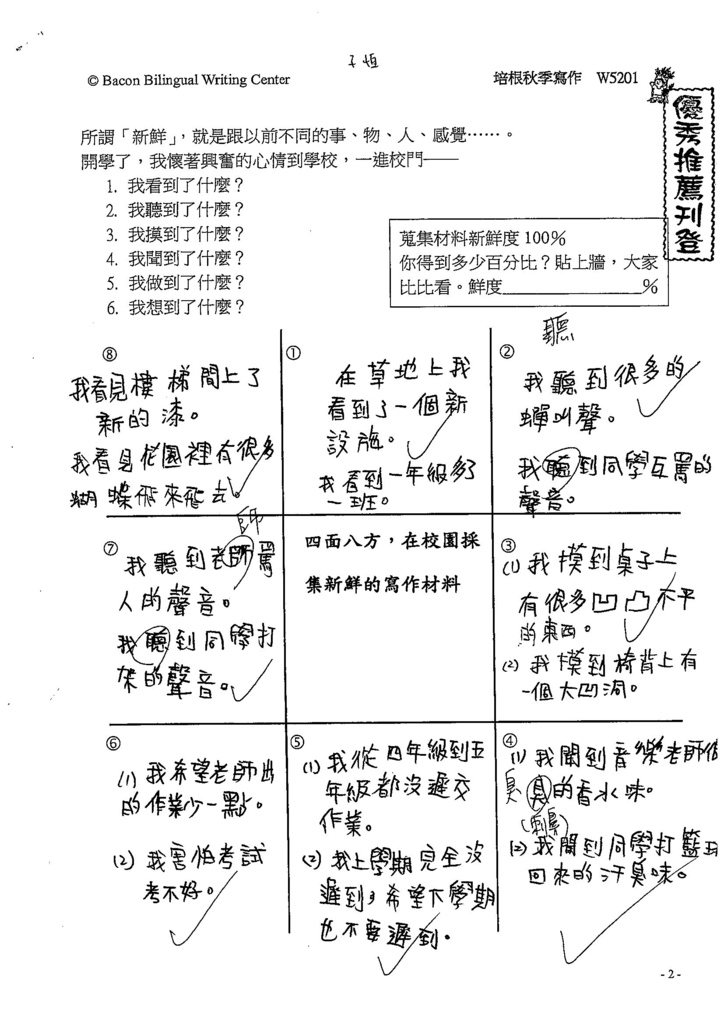 子恆
© Bacon Bilingual Writing Center
培根秋季寫作 W5201
優秀推薦刊登
所謂「新鮮」，就是跟以前不同的事、物、人、感覺……。
開學了，我懷著興奮的心情到學校，一進校門——
1. 我看到了什麼？
2. 我聽到了什麼？
3. 我摸到了什麼？
4. 我聞到了什麼？
5. 我做到了什麼？
6. 我想到了什麼？
蒐集材料新鮮度 100%
你得到多少百分比？貼上牆，大家
比比看。鮮度________%
⑧
我看見樓梯間上了
新的漆。
我看見花園裡有很多
蝴蝶飛來飛去。
①
在草地上我
看到了一個新
設施。
我看到一年級多了
一班。
聽
②
我聽到很多的
蟬叫聲。
我聽到同學互罵的
聲音。
師
⑦
我聽到老師罵
人的聲音。
我聽到同學打
架的聲音。
四面八方，在校園採
集新鮮的寫作材料
③
(1) 我摸到桌子上
有很多凹凸不平
的東西。
(2) 我摸到椅背上有
一個大凹洞。
⑥
(1) 我希望老師出
的作業少一點。
(2) 我害怕考試
考不好。
⑤
(1) 我從四年級到五
年級都沒遲交
作業。
(2) 我上學期完全沒
遲到，希望下學期
也不要遲到。
④
(1) 我聞到音樂老師
臭臭的香水味。
(刺鼻)
(2) 我聞到同學打籃球
回來的汗臭味。
- 2 -